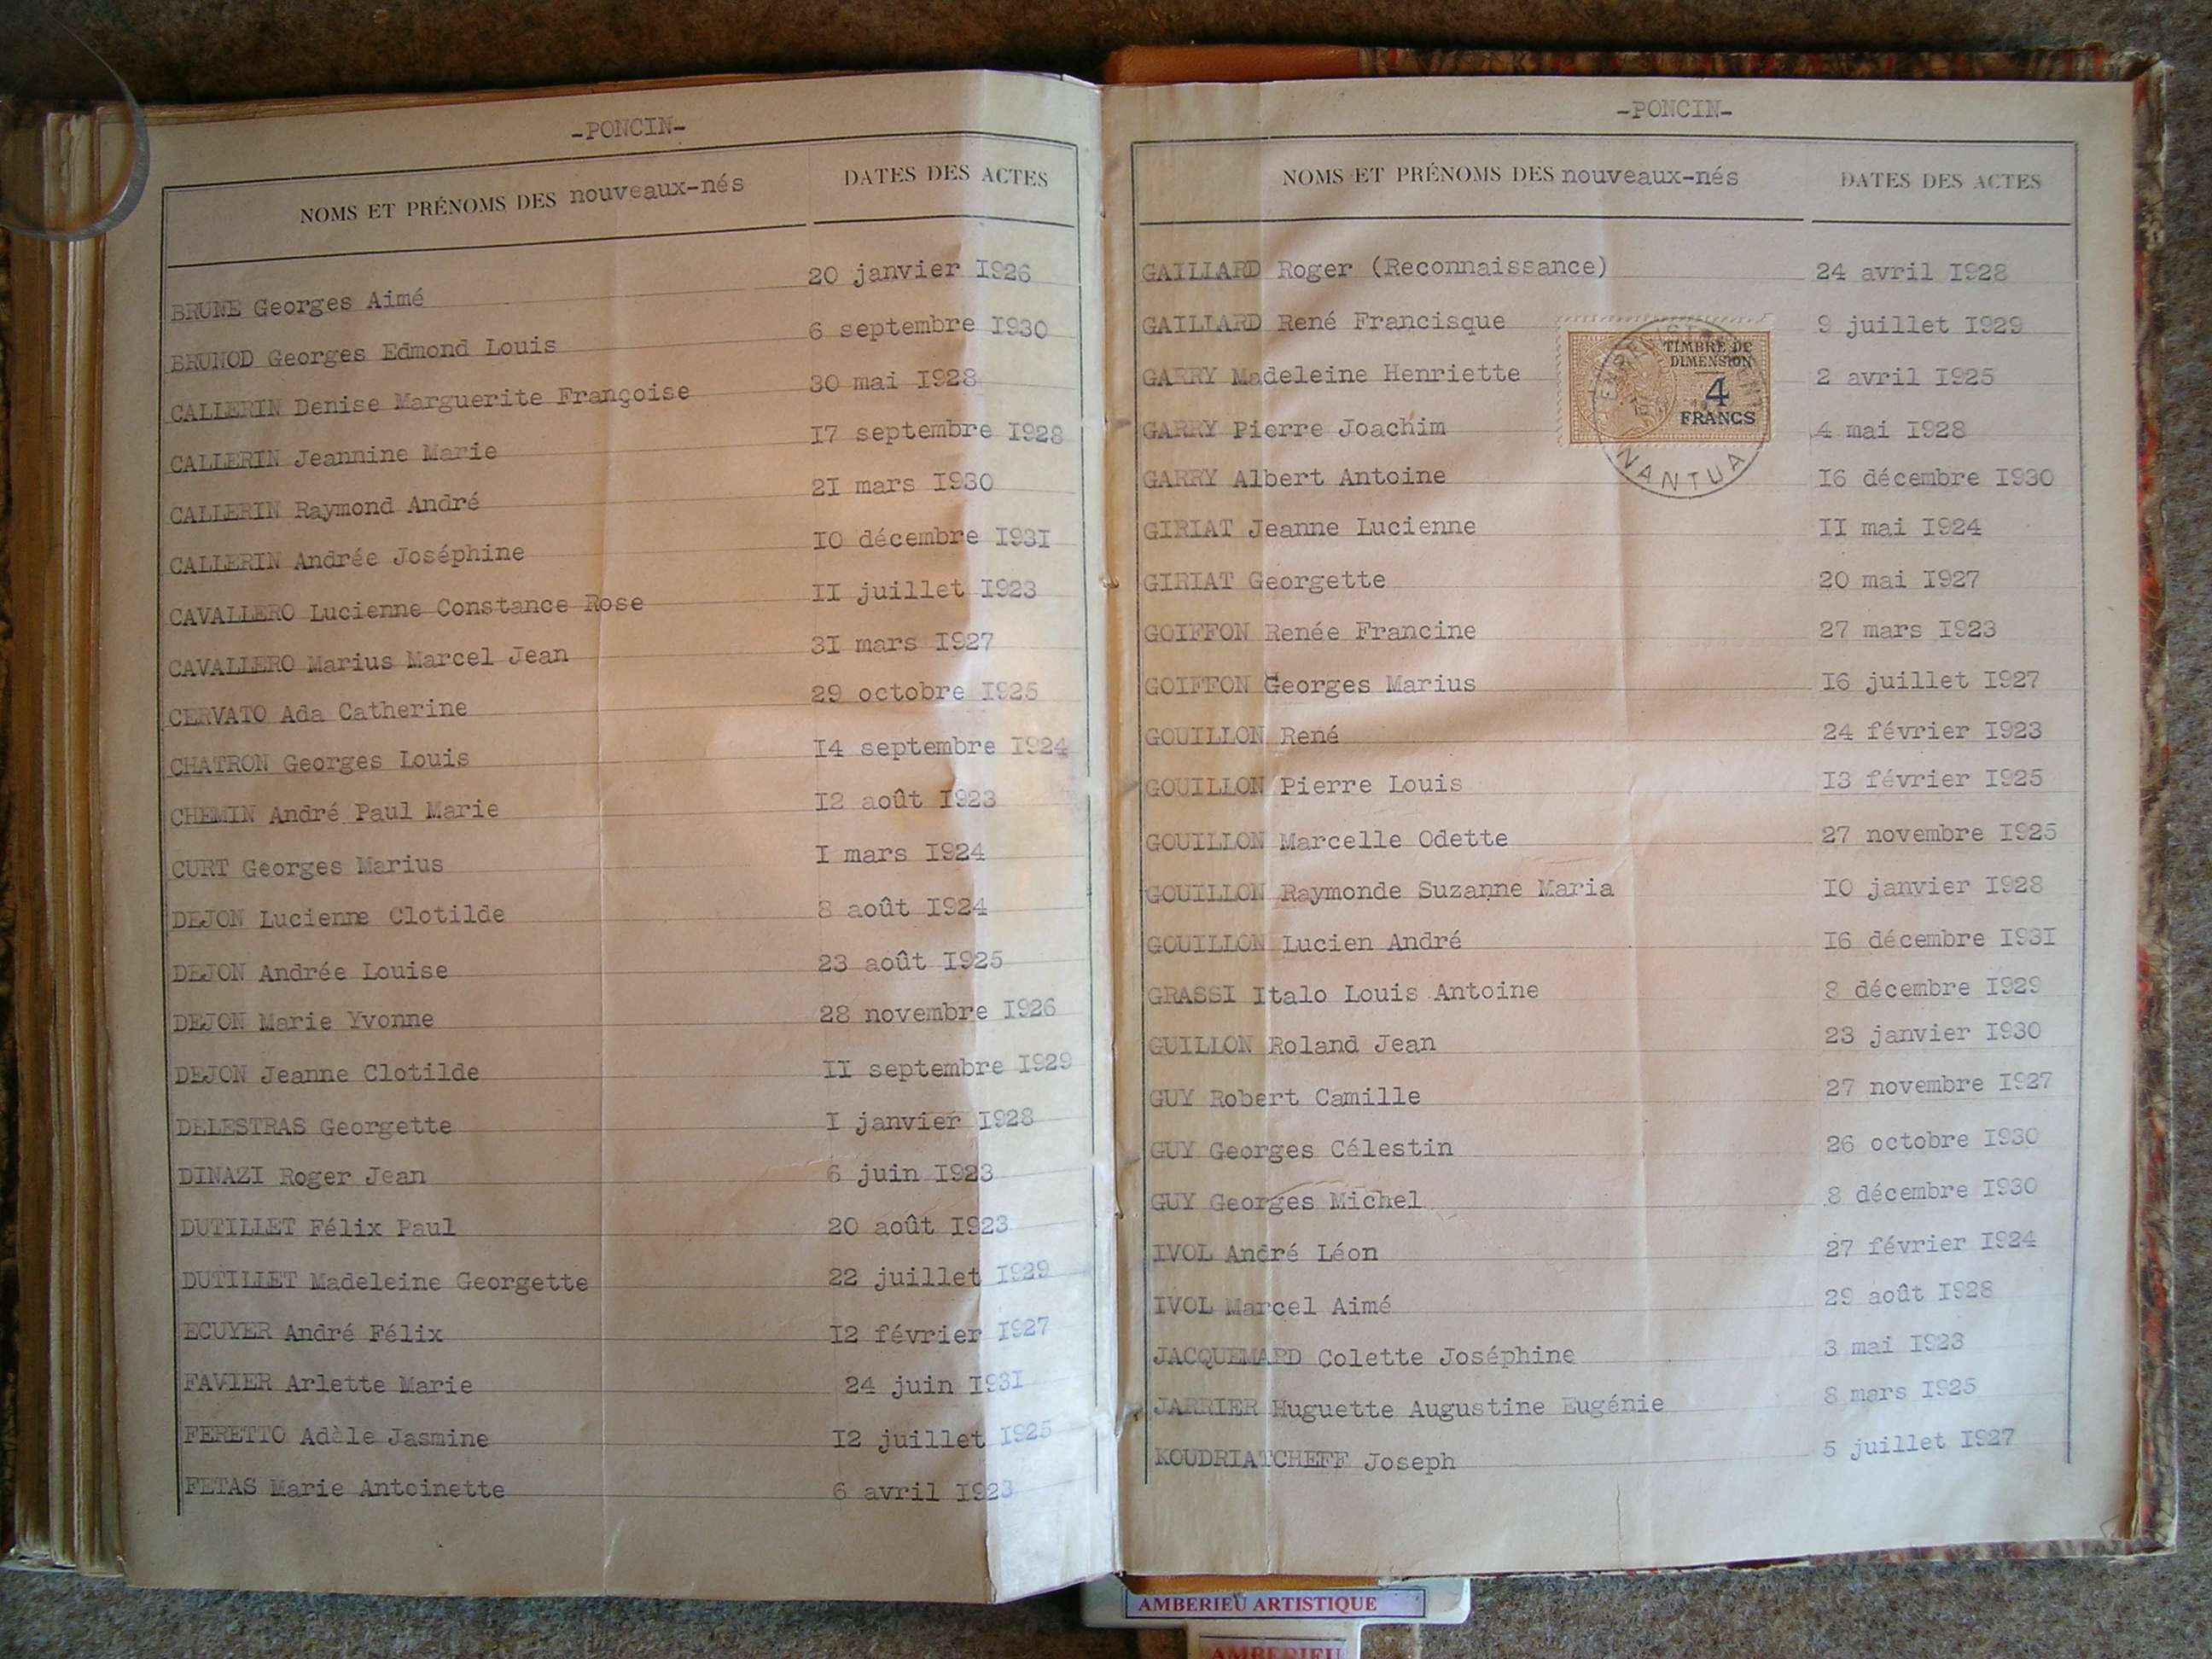 -PONCIN-
NOMS ET PRÉNOMS DES nouveaux-nés DATES DES ACTES
BRUNE Georges Aimé 20 janvier I926
BRUNOD Georges Edmond Louis 6 septembre I930
CALLERIN Denise Marguerite Françoise 30 mai I928
CALLERIN Jeannine Marie I7 septembre I928
CALLERIN Raymond André 2I mars I930
CALLERIN Andrée Joséphine I0 décembre I93I
CAVALLERO Lucienne Constance Rose II juillet I923
CAVALLERO Marius Marcel Jean 3I mars I927
CERVATO Ada Catherine 29 octobre I925
CHATRON Georges Louis I4 septembre I924
CHEMIN André Paul Marie I2 août I923
CURT Georges Marius I mars I924
DEJON Lucienne Clotilde 8 août I924
DEJON Andrée Louise 23 août I925
DEJON Marie Yvonne 28 novembre I926
DEJON Jeanne Clotilde II septembre I929
DELESTRAS Georgette I janvier I928
DINAZI Roger Jean 6 juin I923
DUTILLET Félix Paul 20 août I923
DUTILLET Madeleine Georgette 22 juillet I929
ECUYER André Félix I2 février I927
FAVIER Arlette Marie 24 juin I93I
FERETTO Adèle Jasmine I2 juillet I925
FETAS Marie Antoinette 6 avril I923
-PONCIN-
NOMS ET PRÉNOMS DES nouveaux-nés DATES DES ACTES
GAILLARD Roger (Reconnaissance) 24 avril I928
GAILLARD René Francisque 9 juillet I929
TIMBRE DE
DIMENSION
4
FRANCS
NANTUA
GARRY Madeleine Henriette 2 avril I925
GARRY Pierre Joachim 4 mai I928
GARRY Albert Antoine I6 décembre I930
GIRIAT Jeanne Lucienne II mai I924
GIRIAT Georgette 20 mai I927
GOIFFON Renée Francine 27 mars I923
GOIFFON Georges Marius I6 juillet I927
GOUILLON René 24 février I923
GOUILLON Pierre Louis I3 février I925
GOUILLON Marcelle Odette 27 novembre I925
GOUILLON Raymonde Suzanne Maria I0 janvier I928
GOUILLON Lucien André I6 décembre I93I
GRASSI Italo Louis Antoine 8 décembre I929
GUILLON Roland Jean 23 janvier I930
GUY Robert Camille 27 novembre I927
GUY Georges Célestin 26 octobre I930
GUY Georges Michel 8 décembre I930
IVOL André Léon 27 février I924
IVOL Marcel Aimé 29 août I928
JACQUEMARD Colette Joséphine 3 mai I923
JARRIER Huguette Augustine Eugénie 8 mars I925
KOUDRIATCHEFF Joseph 5 juillet I927
AMBERIEU ARTISTIQUE
AMBERIEU